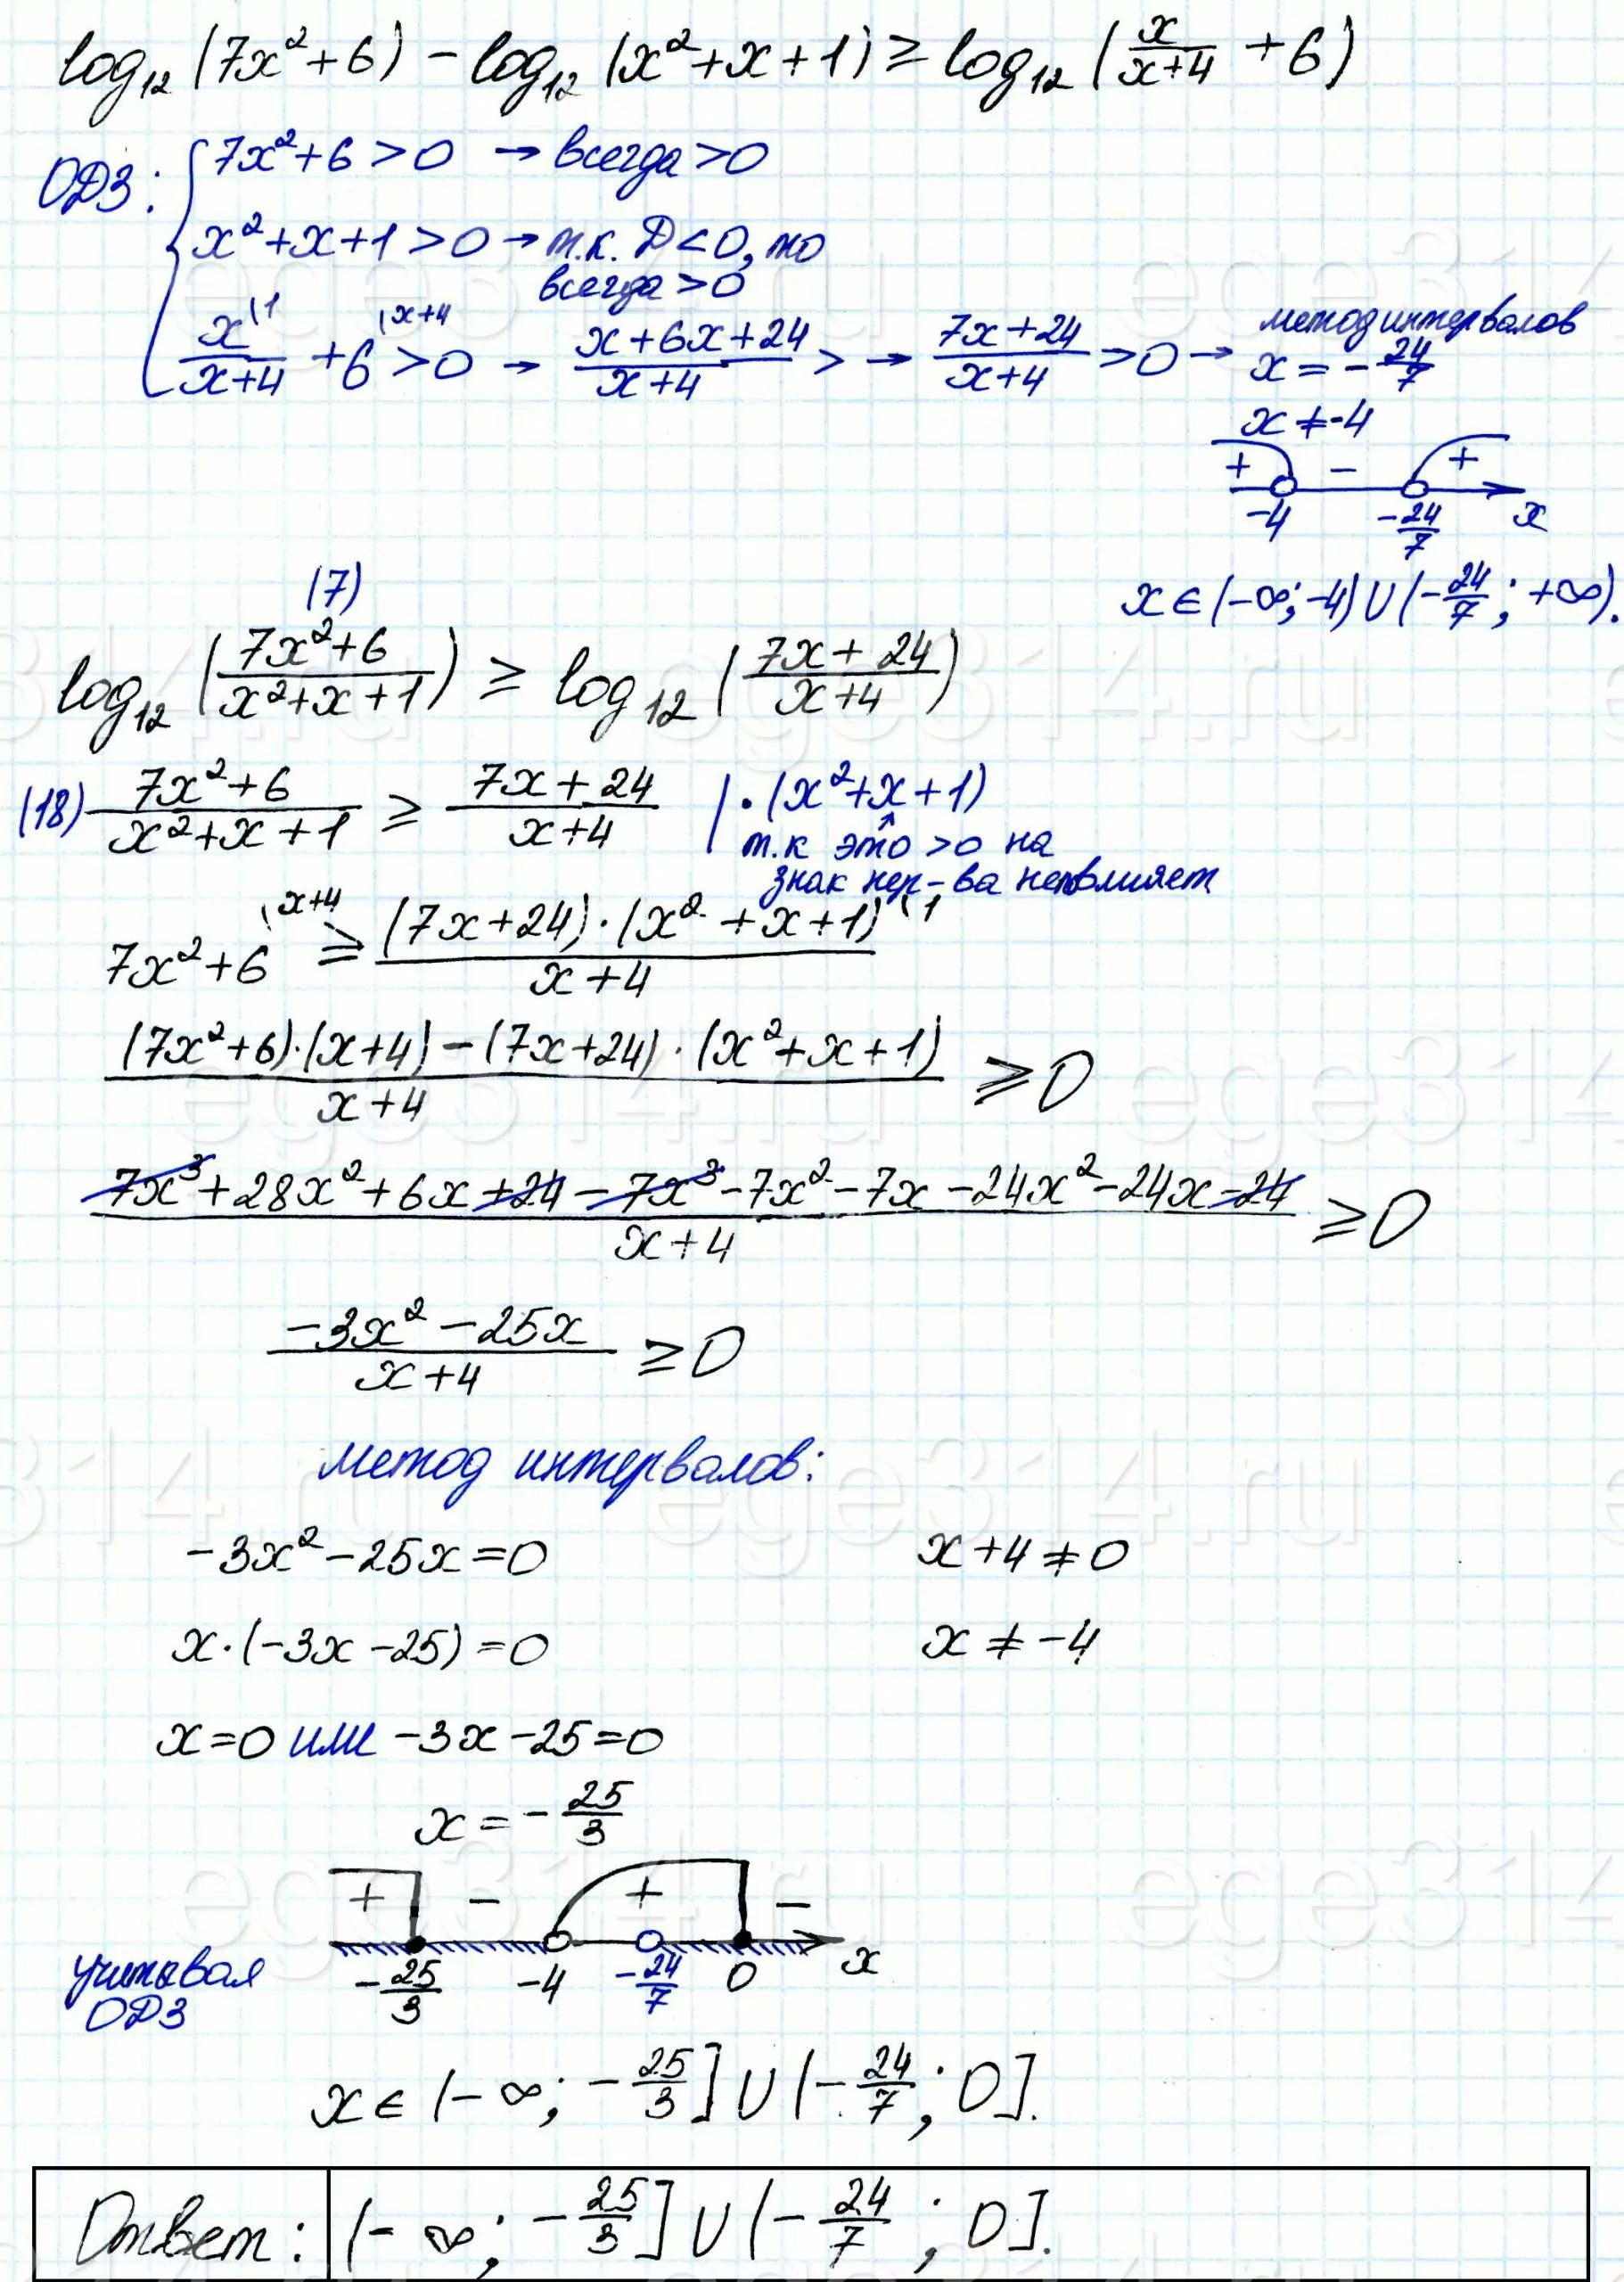 log₁₂(7x²+6) − log₁₂(x²+x+1) ≥ log₁₂(x/(x+4) + 6)
ОДЗ: { 7x²+6 > 0 → всегда > 0
x²+x+1 > 0 → т.к. D < 0, то
всегда > 0
x/(x+4) (1 + 6 (x+4 > 0 → (x+6x+24)/(x+4) > → (7x+24)/(x+4) > 0 → метод интервалов
x = −24/7
x ≠ −4
+ − +
−4 −24/7 x
x ∈ (−∞; −4) ∪ (−24/7; +∞).
(7)
log₁₂((7x²+6)/(x²+x+1)) ≥ log₁₂((7x+24)/(x+4))
(18) (7x²+6)/(x²+x+1) ≥ (7x+24)/(x+4) | · (x²+x+1)
т.к это >0 на
знак нер-ва не влияет
7x²+6 (x+4 ≥ (7x+24)·(x²+x+1)/(x+4) (1
((7x²+6)·(x+4) − (7x+24)·(x²+x+1))/(x+4) ≥ 0
(7x³+28x²+6x+24−7x³−7x²−7x−24x²−24x−24)/(x+4) ≥ 0
(−3x²−25x)/(x+4) ≥ 0
метод интервалов:
−3x²−25x=0 x+4≠0
x·(−3x−25)=0 x≠−4
x=0 или −3x−25=0
x=−25/3
+ − + −
учитывая
ОДЗ
−25/3 −4 −24/7 0 x
x ∈ (−∞; −25/3] ∪ (−24/7; 0].
Ответ: (−∞; −25/3] ∪ (−24/7; 0].
ege314.ru